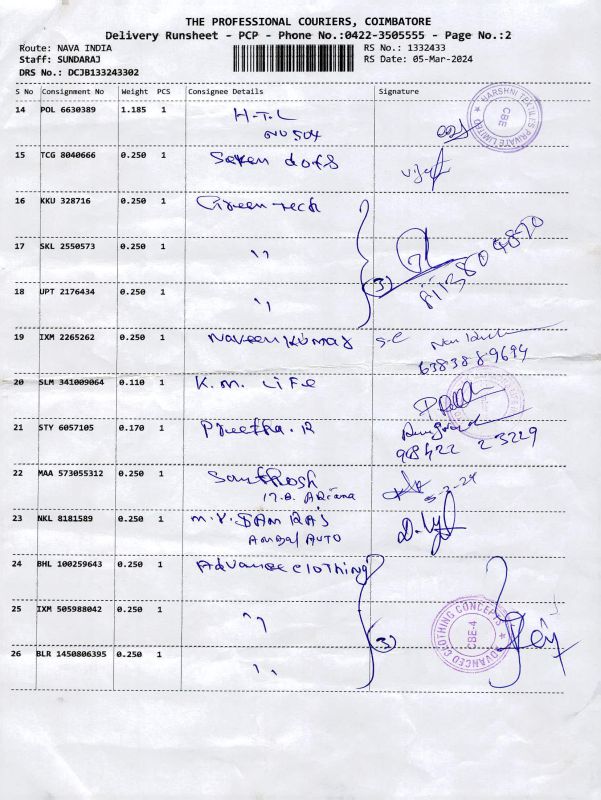 THE PROFESSIONAL COURIERS, COIMBATORE
Delivery Runsheet - PCP - Phone No.:0422-3505555 - Page No.:2
Route: NAVA INDIA
RS No.: 1332433
Staff: SUNDARAJ
RS Date: 05-Mar-2024
DRS No.: DCJB133243302
S No Consignment No Weight PCS Consignee Details Signature
14 POL 6630389 1.185 1 H.T.L
NARSHNI TEXTILES PRIVATE LIMITED CBE
15 TCG 8040666 0.250 1
16 KKU 328716 0.250 1 Green tech
17 SKL 2550573 0.250 1 ''
(3)
18 UPT 2176434 0.250 1 ''
19 IXM 2265262 0.250 1 Naveen Kumar
6383889694
20 SLM 341009064 0.110 1 K.M. LIFE
21 STY 6057105 0.170 1 Preetha.R
98422 23229
22 MAA 573055312 0.250 1 Santhosh
23 NKL 8181589 0.250 1 M.Y. SAM RAJ
AMBAL AUTO
24 BHL 100259643 0.250 1 Advance clothing
25 IXM 505988042 0.250 1 ''
(3)
ADVANCED CLOTHING CONCEPTS CBE-4
26 BLR 1450806395 0.250 1 ''